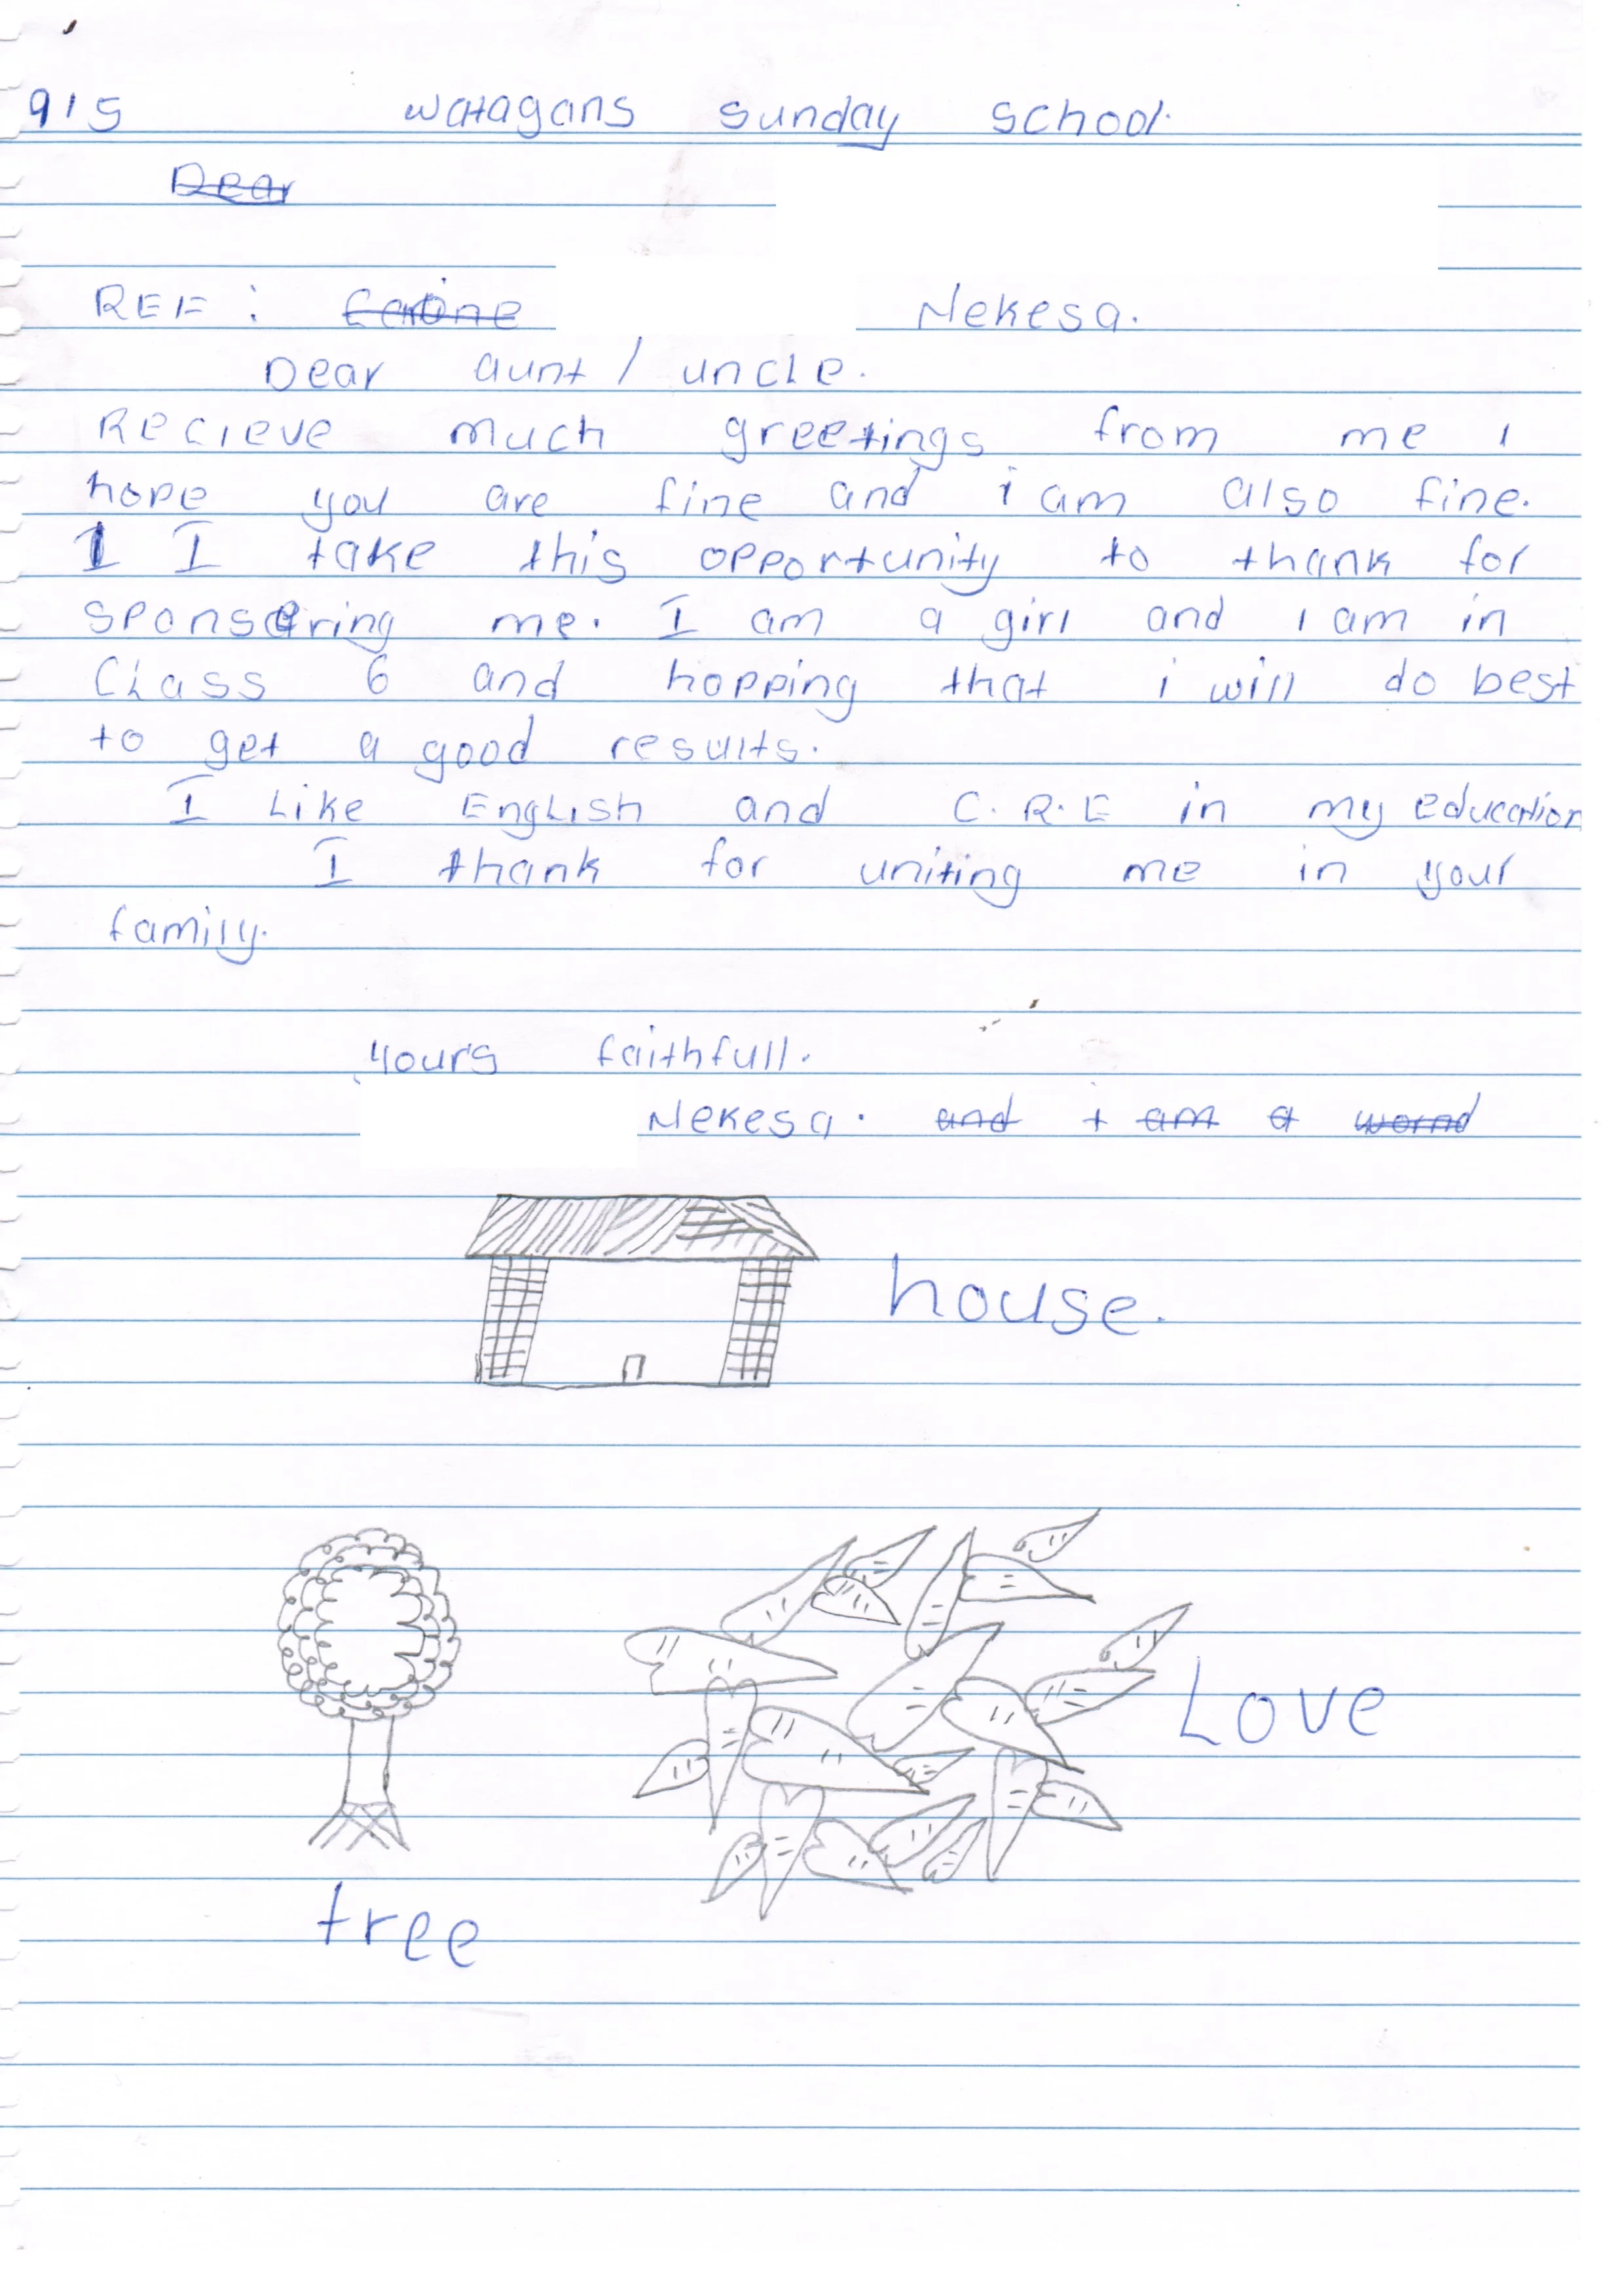 915 Watagans Sunday School.
Dear
REF : Nekesa.
Dear aunt / uncle.
Recieve much greetings from me I
hope you are fine and i am also fine.
I I take this opportunity to thank for
sponsering me. I am a girl and i am in
Class 6 and hopping that i will do best
to get a good results.
I Like English and C.R.E in my education
I thank for uniting me in your
family.
Yours faithfull.
Nekesa. and I am a
house.
Love
tree